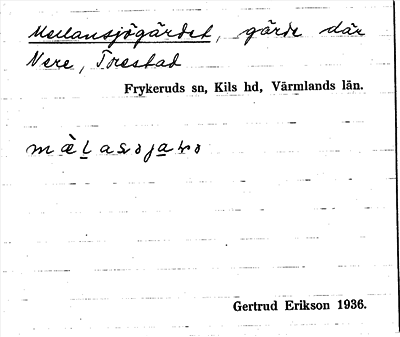 Mellansjögärdet, gärde där
Nere, Trestad
Frykeruds sn, Kils hd, Värmlands län.
Gertrud Erikson 1936.